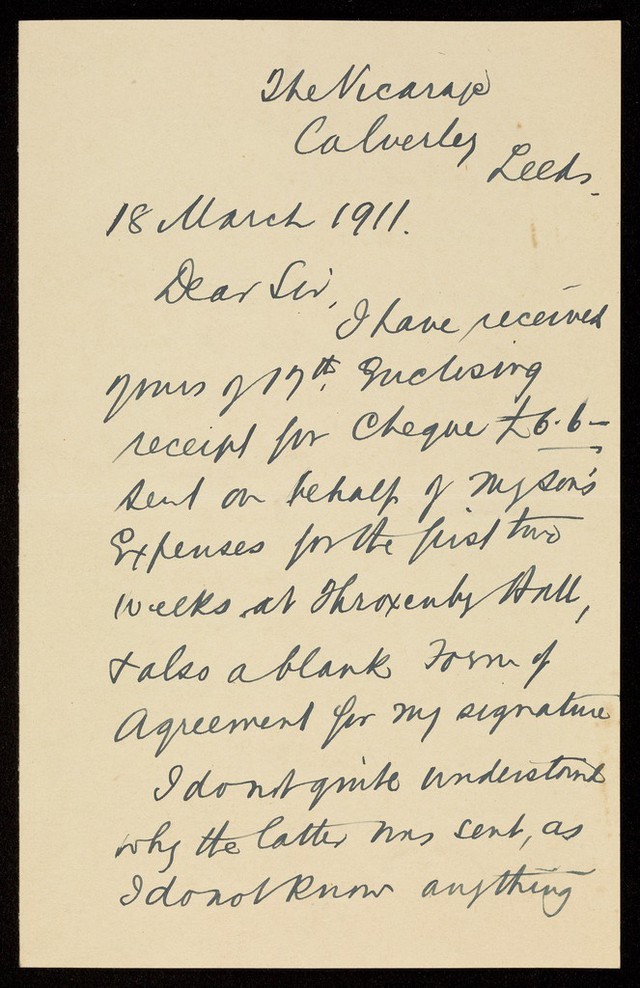 The Vicarage
Calverley
Leeds.
18 March 1911.
Dear Sir,
I have received
yours of 17th. Enclosing
receipt for Cheque £6.6-
sent on behalf of my son's
Expenses for the first two
weeks at Throxenby Hall,
& also a blank Form of
Agreement for my signature
I do not quite understand
why the latter was sent, as
I do not know anything